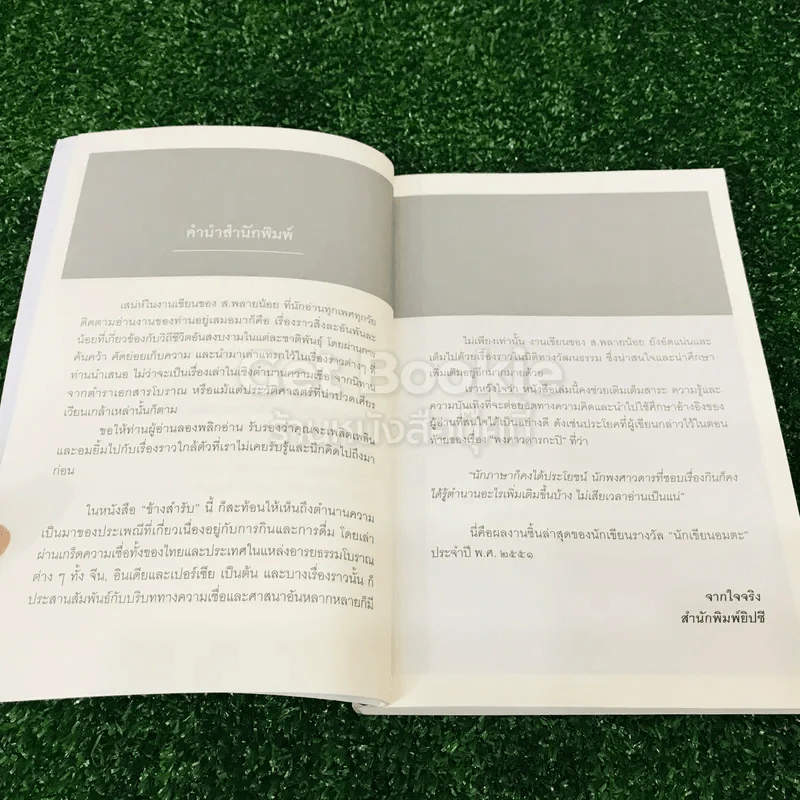 คำนำสำนักพิมพ์
เสน่ห์ในงานเขียนของ ส.พลายน้อย ที่นักอ่านทุกเพศทุกวัย
ติดตามอ่านงานของท่านอยู่เสมอมาก็คือ เรื่องราวสิ่งละอันพันละ
น้อยที่เกี่ยวข้องกับวิถีชีวิตอันสงบงามในแต่ละชาติพันธุ์ โดยผ่านการ
ค้นคว้า คัดย่อยเก็บความ และนำมาเล่าแทรกไว้ในเรื่องราวต่างๆ ที่
ท่านนำเสนอ ไม่ว่าจะเป็นเรื่องเล่าในเชิงตำนานความเชื่อ จากนิทาน
จากตำราเอกสารโบราณ หรือแม้แต่ประวัติศาสตร์ที่น่าปวดเศียร
เวียนเกล้าเหล่านั้นก็ตาม
ขอให้ท่านผู้อ่านลองพลิกอ่าน รับรองว่าคุณจะเพลิดเพลิน
และอมยิ้มไปกับเรื่องราวใกล้ตัวที่เราไม่เคยรับรู้และนึกคิดไปถึงมา
ก่อน
ในหนังสือ “ช้างสำรับ” นี้ ก็สะท้อนให้เห็นถึงตำนานความ
เป็นมาของประเพณีที่เกี่ยวเนื่องอยู่กับการกินและการดื่ม โดยเล่า
ผ่านเกร็ดความเชื่อทั้งของไทยและประเทศในแหล่งอารยธรรมโบราณ
ต่าง ๆ ทั้ง จีน, อินเดียและเปอร์เซีย เป็นต้น และบางเรื่องราวนั้น ก็
ประสานสัมพันธ์กับบริบททางความเชื่อและศาสนาอันหลากหลายก็มี
ไม่เพียงเท่านั้น งานเขียนของ ส.พลายน้อย ยังอัดแน่นและ
เต็มไปด้วยเรื่องราวในมิติทางวัฒนธรรม ซึ่งน่าสนใจและน่าศึกษา
เพิ่มเติมอยู่อีกมากมายด้วย
เราหวังใจว่า หนังสือเล่มนี้คงช่วยเติมเต็มสาระ ความรู้และ
ความบันเทิงที่จะต่อยอดทางความคิดและนำไปใช้ศึกษาอ้างอิงของ
ผู้อ่านที่สนใจได้เป็นอย่างดี ดังเช่นประโยคที่ผู้เขียนกล่าวไว้ในตอน
ท้ายของเรื่อง “พงศาวดารกะปิ” ที่ว่า
“นักภาษาก็คงได้ประโยชน์ นักพงศาวดารที่ชอบเรื่องกินก็คง
ได้รู้ตำนานอะไรเพิ่มเติมขึ้นบ้าง ไม่เสียเวลาอ่านเป็นแน่”
นี่คือผลงานชิ้นล่าสุดของนักเขียนรางวัล “นักเขียนอมตะ”
ประจำปี พ.ศ. ๒๕๕๑
จากใจจริง
สำนักพิมพ์ยิปซี